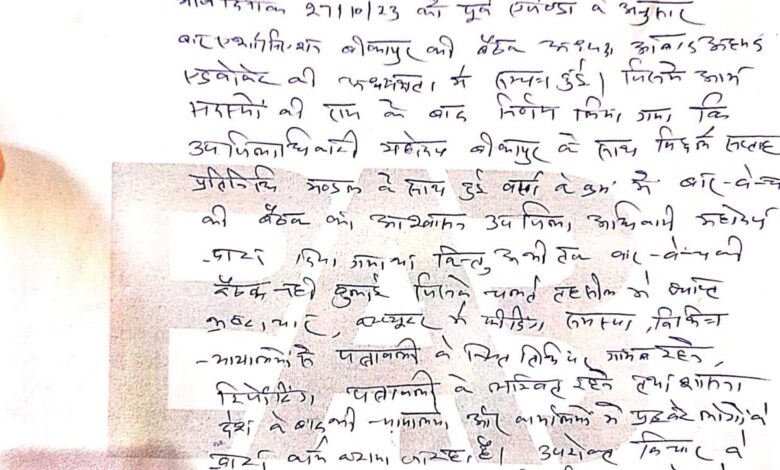 आज दिनांक 27/10/23 को पूर्व एजेण्डा के अनुसार
बार एसोसिएशन बीकापुर की बैठक अध्यक्ष अहमद
एडवोकेट की अध्यक्षता में सम्पन्न हुई। जिसमें आम
सदस्यों की राय के बाद निर्णय लिया गया कि
उपजिलाधिकारी महोदय बीकापुर के साथ पिछले सप्ताह
प्रतिनिधि मण्डल के साथ हुई वार्ता के क्रम में बार-बेन्च
की बैठक का आश्वासन उपजिलाधिकारी महोदय
द्वारा दिया गया था किन्तु अभी तक बार-बेन्च की
बैठक नहीं बुलाई जिसके चलते तहसील में व्याप्त
भ्रष्टाचार, कम्प्यूटर में फीडिंग समस्या, विभिन्न
न्यायालयों के पत्रावली के नियत तिथि पर गायब रहने,
रिपोर्टिंग, पत्रावली के लम्बित रहने तथा शासना
देश के बाद भी न्यायालय और कार्यालयों में प्राइवेट लोगों के
द्वारा कार्य कराया जा रहा है। उपरोक्त के
EAB